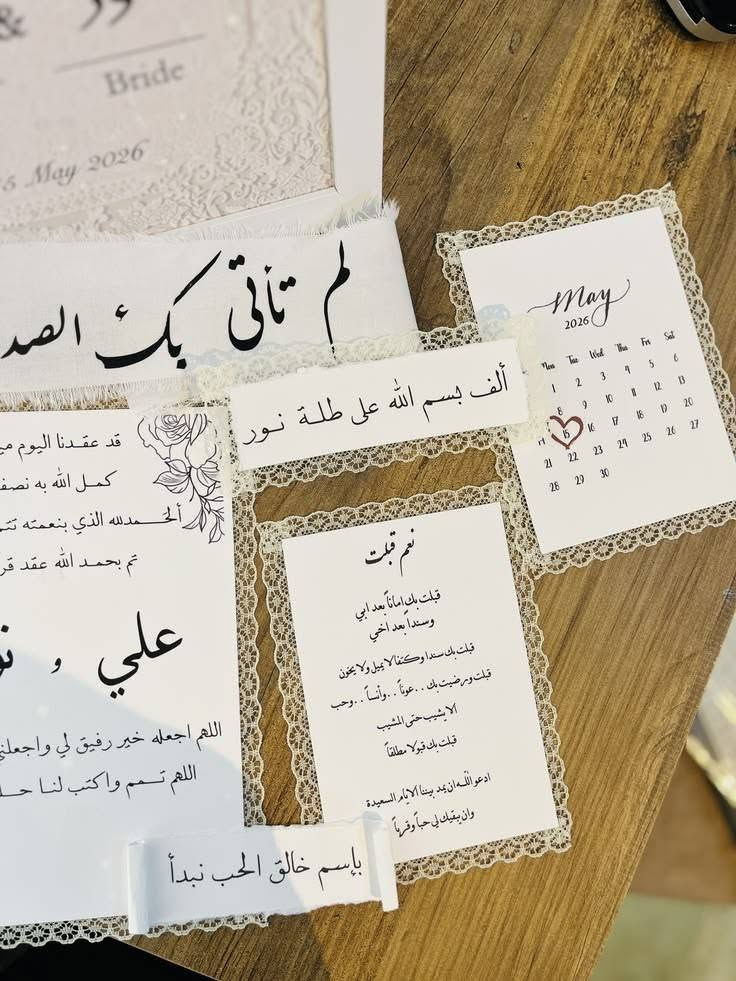 &
Bride
5 May 2026
لم تأتي بك الصد
ألف بسم الله على طلة نور
May
2026
Tue Wed Thu Fri Sat
1 2 3 4 5 6
8 9 10 11 12 13
14 15 16 17 18 19 20
21 22 23 24 25 26 27
28 29 30
قد عقدنا اليوم مي
كمل الله به نصف
ألحمدلله الذي بنعمته تتم
تم بحمد الله عقد قر
علي و نو
اللهم اجعله خير رفيق لي واجعلني
اللهم تمم واكتب لنا حل
نعم قبلت
قبلت بك اماناً بعد ابي
وسنداً بعد اخي
قبلت بك سندا وكتفا لا يميل ولا يخون
قبلت ورضيت بك . . عوناً . . وأنساً . . وحب
لا يشيب حتى المشيب
قبلت بك قبولا مطلقاً
ادعو الله ان يمد بيننا الايام السعيدة
وان يبقيك لي حباً وقرباً
بإسم خالق الحب نبدأ